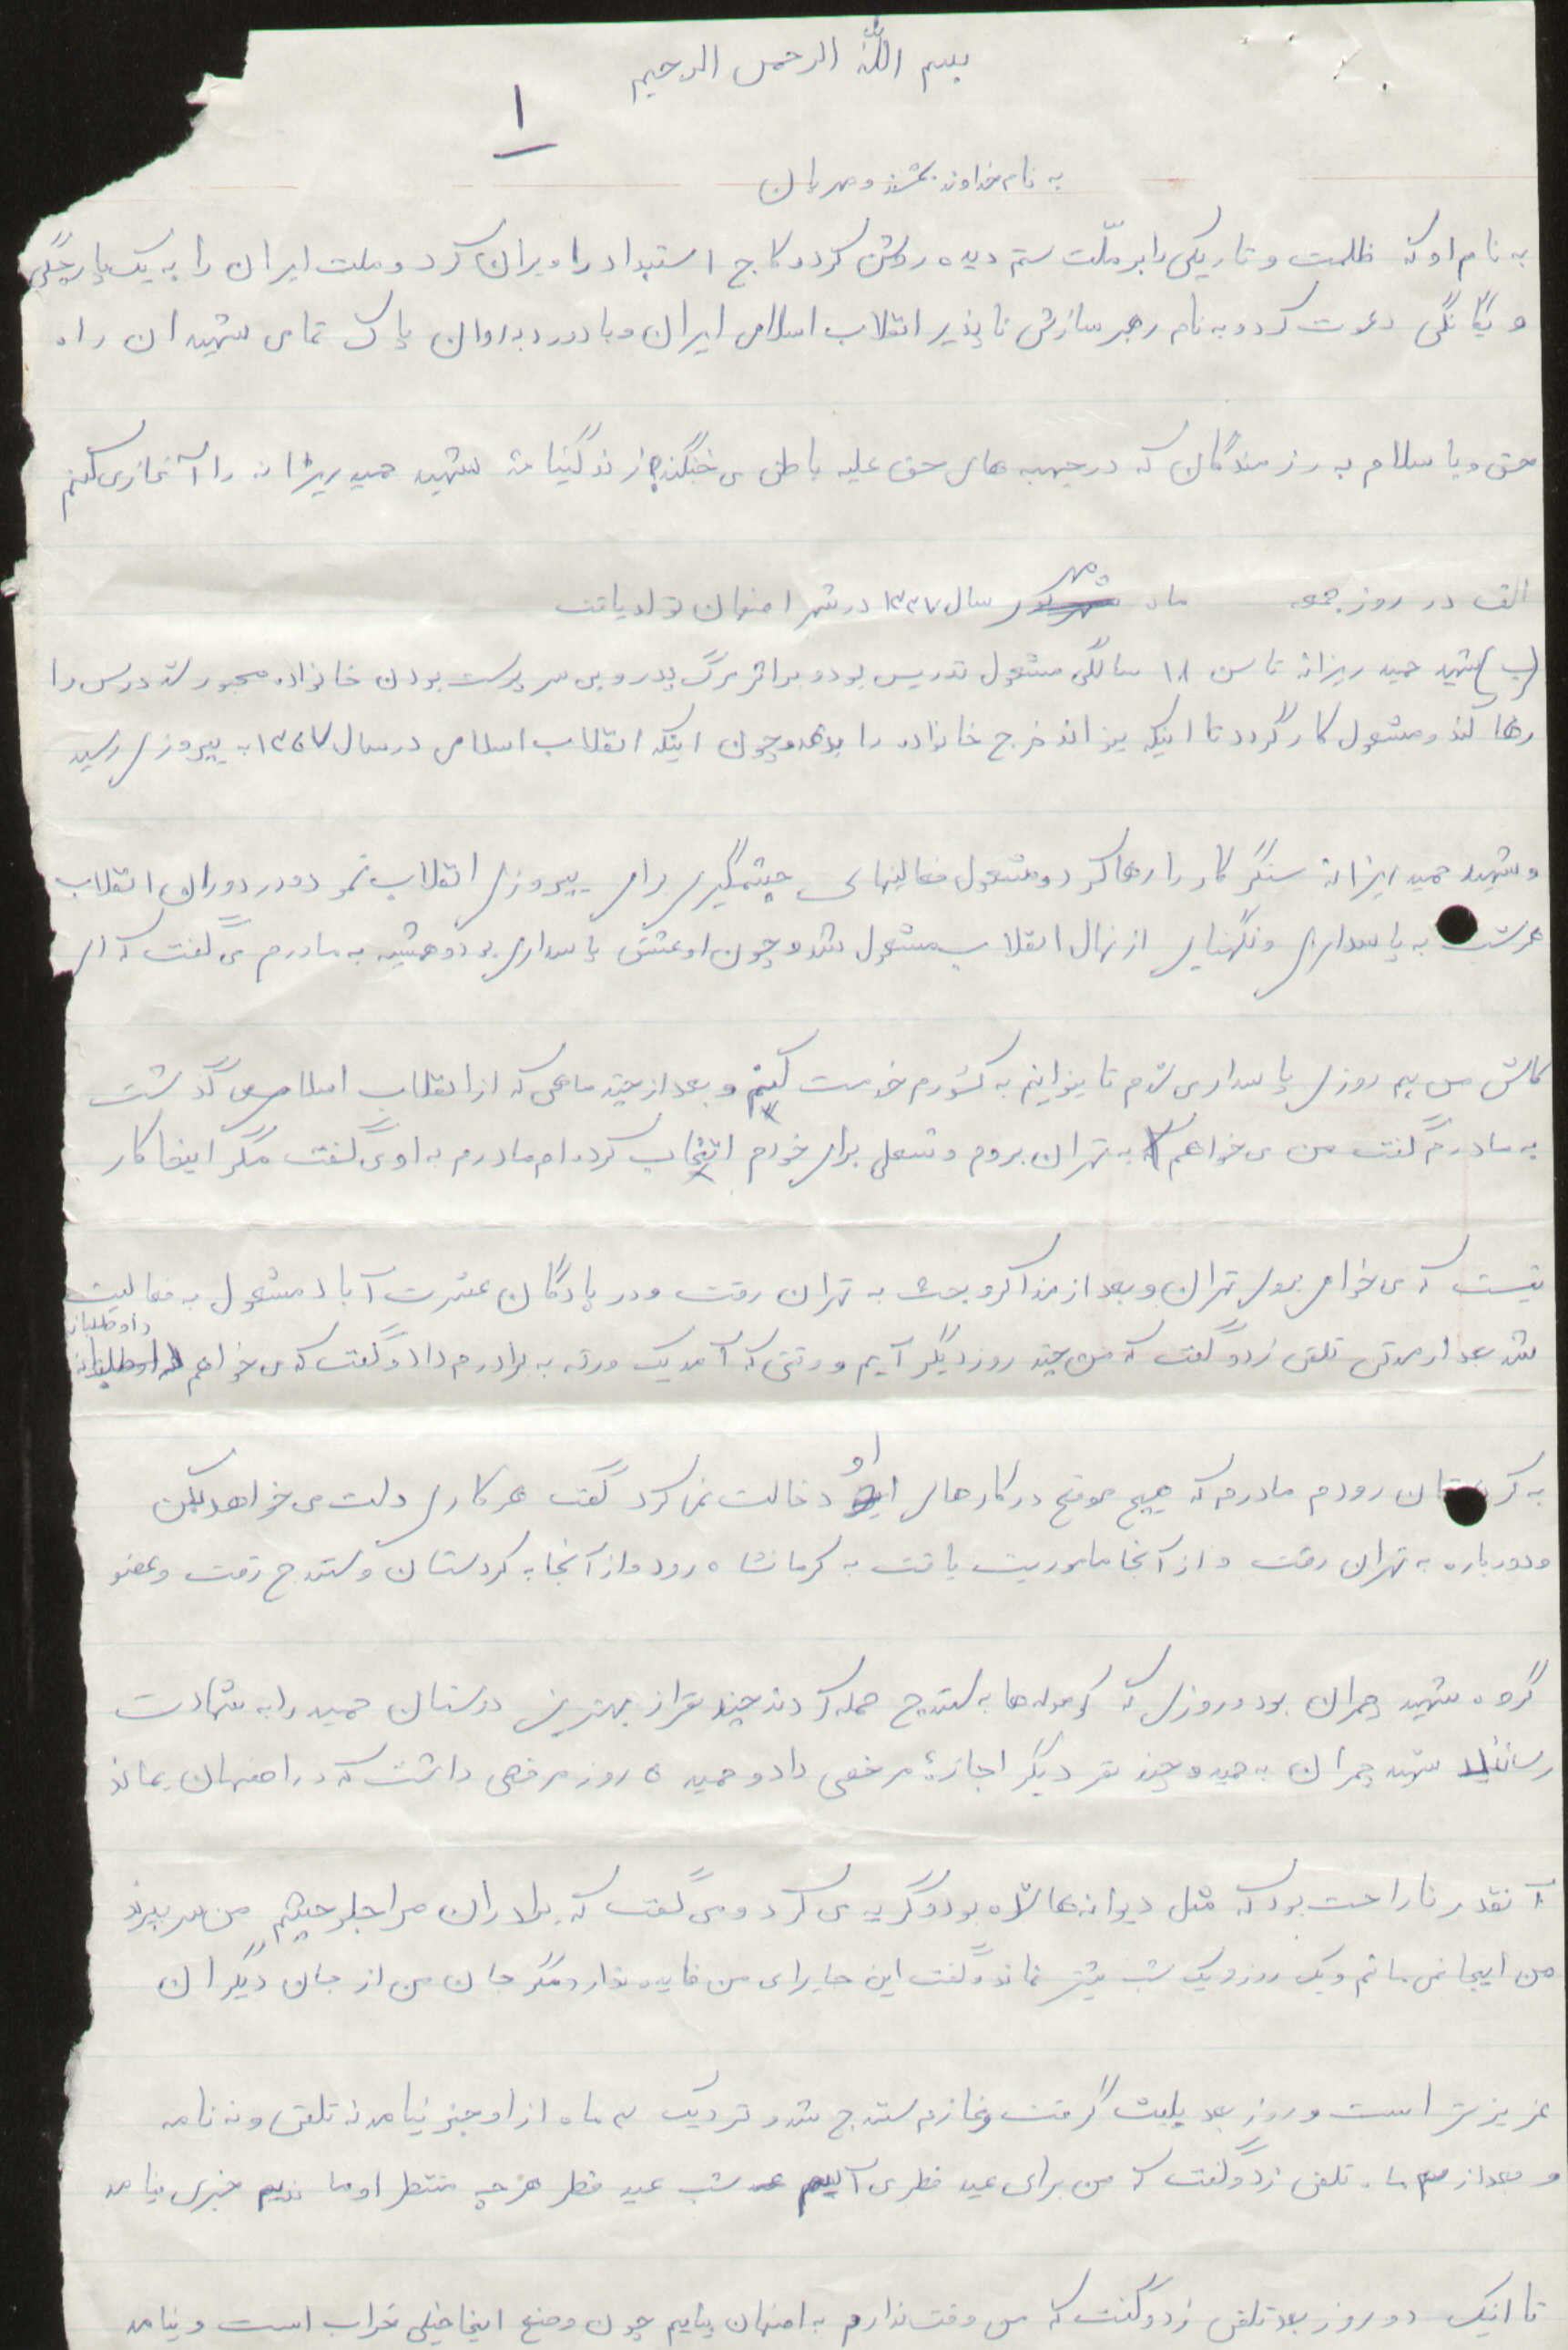 بسم الله الرحمن الرحیم
۱
به نام خداوند بخشنده و مهربان
به نام او که ظلمت و تاریکی را بر ملّت ستم دیده روشن کرد و کاج استبداد را ویران کرد و ملت ایران را به یک پارچگی
و یگانگی دعوت کرد و به نام رهبر سازش ناپذیر انقلاب اسلامی ایران و با درود به روان پاک تمامی شهیدان راه
حق و با سلام به رزمندگان که در جبهه های حق علیه باطل می جنگند زندگینامۀ شهید حمید ریزانه را آغاز می کنم
الف در روز جمعه ماه مهر سال ۱۳۳۷ در شهر اصفهان تولد یافت
(ب) شهید حمید ریزانه تا سن ۱۸ سالگی مشغول تدریس بود و بر اثر مرگ پدر و بی سرپرست بودن خانواده مجبور شد درس را
رها کند و مشغول کار گردد تا اینکه بتواند خرج خانواده را بدهد و چون اینکه انقلاب اسلامی در سال ۱۳۵۷ به پیروزی رسید
و شهید حمید ریزانه سنگر کار را رها کرد و مشغول فعالیتهای چشمگیری برای پیروزی انقلاب نمود و در دوران انقلاب
هر شب به پاسداری و نگهبانی از نهال انقلاب مشغول شد و چون او عشق پاسداری بود و همیشه به مادرم می گفت که ای
کاش من یه روزی پاسداری شدم تا بتوانیم به کشورم خدمت کنم و بعد از چند ماهی که از انقلاب اسلامی گذشت
به مادرم گفت من می خواهم به تهران بروم و شغلی برای خودم انتخاب کرده ام مادرم به او می گفت مگر اینجا کار
نیست که می خواهی بروی تهران و بعد از مذاکر و بحث به تهران رفت و در پادگان عشرت آباد مشغول به فعالیت
شد بعد از مدتی تلفن زد و گفت که من چند روز دیگر آیم و وقتی که آمد یک ورقه به برادرم داد و گفت که می خواهم داوطلبانه
به کردستان روم مادرم که هیچ موقع در کارهای او دخالت نمی کرد گفت هر کاری دلت می خواهد بکن
و دوباره به تهران رفت و از آنجا ماموریت یافت به کرمانشاه رود و از آنجا به کردستان و سنندج رفت و عضو
گروه شهید چمران بود و روزی که کومله ها به سنندج حمله کردند چند نفر از بهترین دوستان حمید را به شهادت
رساندند شهید چمران به حمید و چند نفر دیگر اجازۀ مرخصی داد و حمید ۵ روز مرخصی داشت که در اصفهان بماند
آنقدر ناراحت بود که مثل دیوانه ها شده بود و گریه می کرد و می گفت که برادران مرا جلو چشم من سر بریدند
من اینجا نمی مانم و یک روز و یک شب بیشتر نماند و گفت این جا برای من فایده ندارد مگر جان من از جان دیگران
عزیزتر است و روز بعد بلیت گرفت و عازم سنندج شد و نزدیک ۳ ماه از او خبر نیامد نه تلفنی و نه نامه
و بعد از ۳ ماه تلفن زد و گفت که من برای عید فطر می آیم شب عید فطر هر چه منتظر او ماندیم خبری نیامد
تا اینکه دو روز بعد تلفن زد و گفت که من وقت ندارم به اصفهان بیایم چون وضع اینجا خیلی خراب است و نیامد